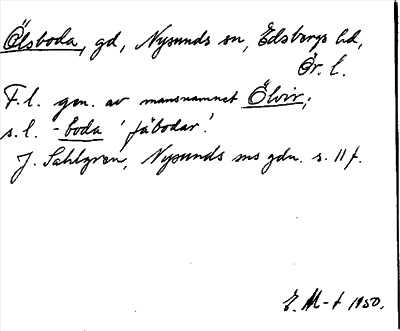 Ölsboda, gd, Nysunds sn, Edsbergs hd,
Ör. l.
F.l. gen. av mansnamnet Ölvir;
s.l. -boda 'fäbodar'.
J. Sahlgren, Nysunds sns gdn. s. 11 f.
E. M-t 1950.